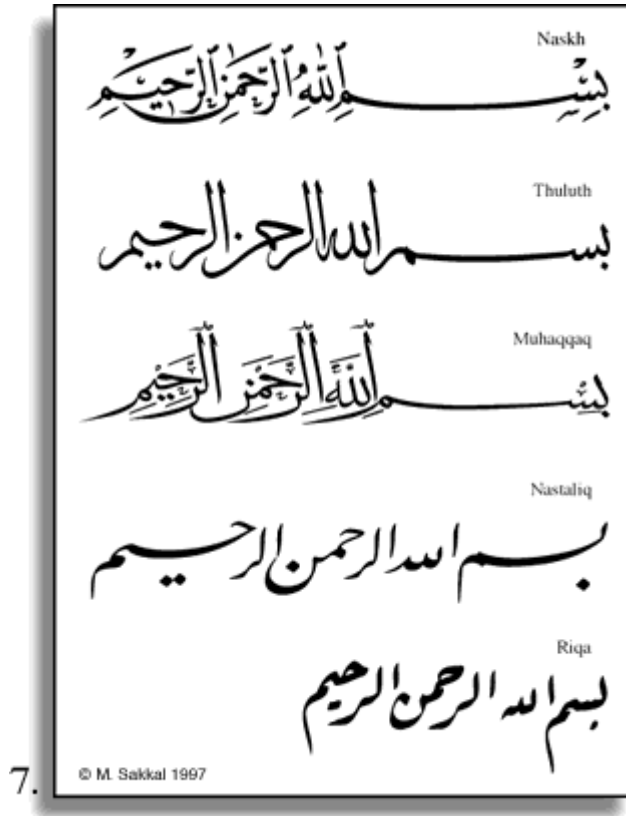 Naskh
بِسْمِ اللّٰهِ الرَّحْمٰنِ الرَّحِيْمِ
Thuluth
بسم الله الرحمن الرحيم
Muhaqqaq
بِسْمِ اللَّهِ الرَّحْمٰنِ الرَّحِيْمِ
Nastaliq
بسم الله الرحمن الرحيم
Riqa
بسم الله الرحمن الرحيم
7. © M. Sakkal 1997